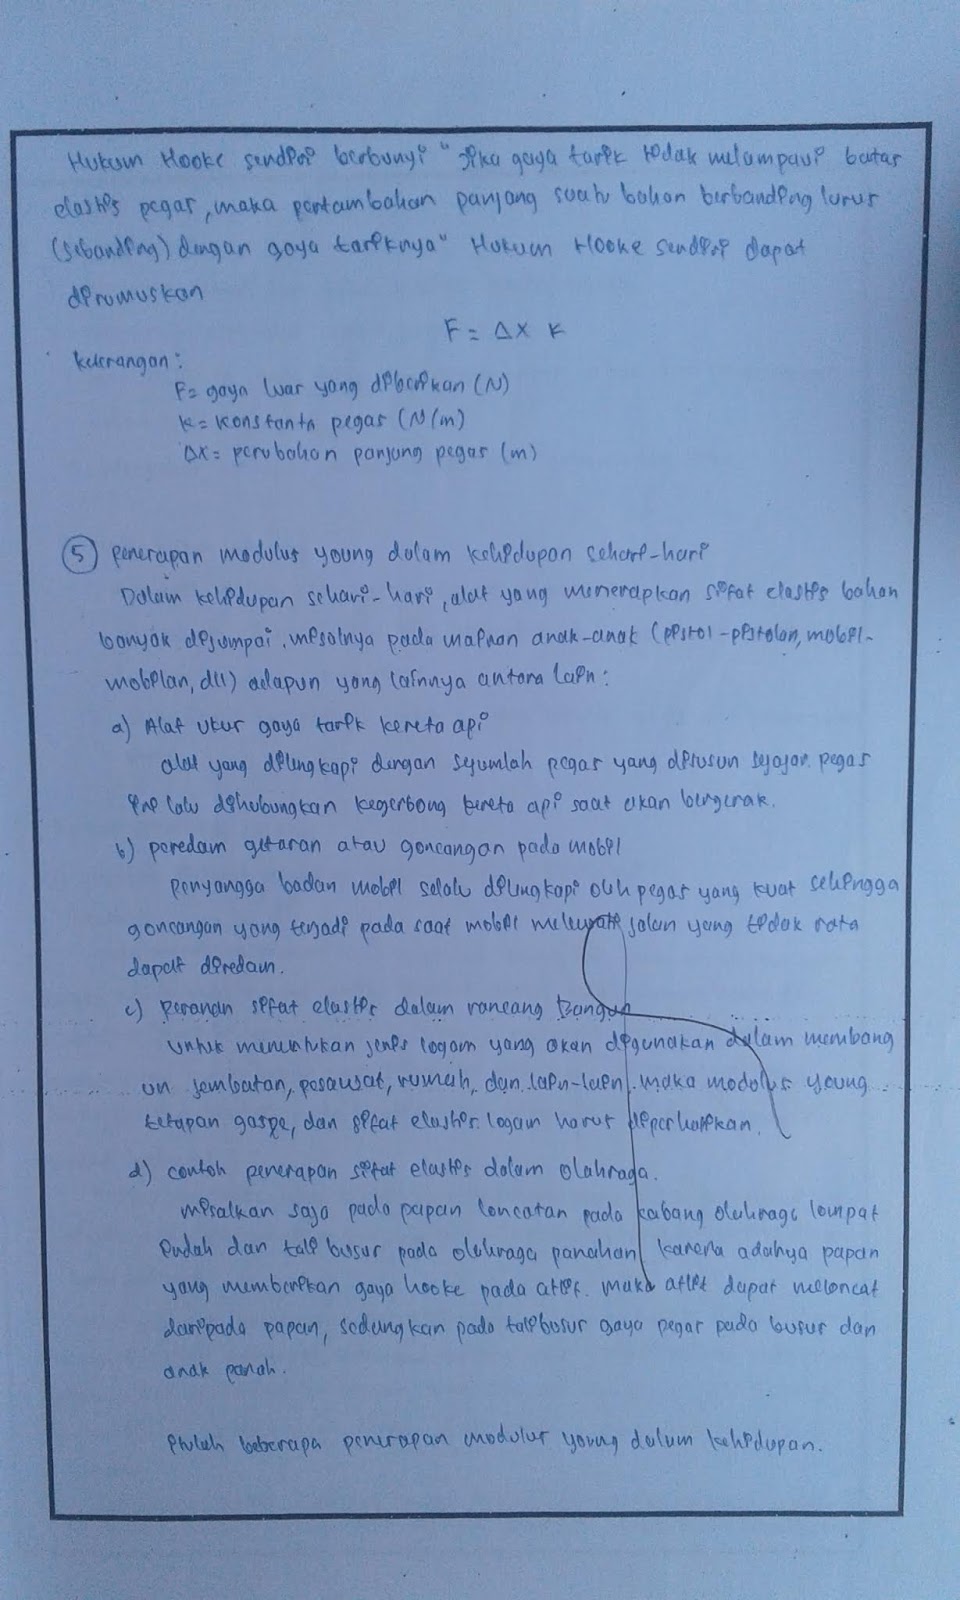 Hukum Hooke sendiri berbunyi "Jika gaya tarik tidak melampaui batas
elastis pegar, maka pertambahan panjang suatu bahan berbanding lurus
(sebanding) dengan gaya tariknya" Hukum Hooke sendiri dapat
dirumuskan
F = Δx k
keterangan :
F = gaya luar yang diberikan (N)
k = konstanta pegas (N/m)
Δx = perubahan panjang pegas (m)
5 penerapan modulus young dalam kehidupan sehari-hari
Dalam kehidupan sehari-hari, alat yang menerapkan sifat elastis bahan
banyak dijumpai. misalnya pada mainan anak-anak (pistol-pistolan, mobil-
mobilan, dll) adapun yang lainnya antara lain :
a) Alat ukur gaya tarik kereta api
alat yang dilengkapi dengan sejumlah pegas yang disusun sejajar. pegas
ini lalu dihubungkan kegerbong kereta api saat akan bergerak.
b) peredam getaran atau goncangan pada mobil
penyangga badan mobil selalu dilengkapi oleh pegas yang kuat sehingga
goncangan yang terjadi pada saat mobil melewati jalan yang tidak rata
dapat diredam.
c) peranan sifat elastis dalam rancang Bangun
untuk menentukan jenis logam yang akan digunakan dalam membang
un jembatan, pesawat, rumah, dan lain-lain. maka modulus young
tetapan gaspe, dan sifat elastis logam harus diperhatikan.
d) contoh penerapan sifat elastis dalam olahraga.
misalkan saja pada papan loncatan pada cabang olahraga lompat
indah dan tali busur pada olahraga panahan karena adanya papan
yang memberikan gaya hooke pada atlit. maka atlit dapat meloncat
daripada papan, sedangkan pada tali busur gaya pegar pada busur dan
anak panah.
itulah beberapa penerapan modulus young dalam kehidupan.